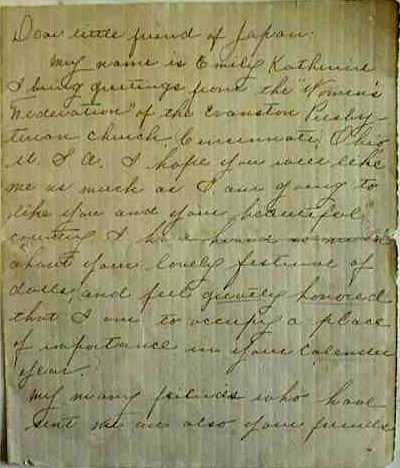 Dear little friend of Japan:
My name is Emily Katherine
I bring greetings from the "Women's
Federation" of the Evanston Presby-
terian church, Cincinnati, Ohio
U. S. A. I hope you will like
me as much as I am going to
like you and your beautiful
country I have heard so much
about your lovely festival of
dolls, and feel greatly honored
that I am to occupy a place
of importance in your Calender
year.
My many friends who have
sent me are also your friends